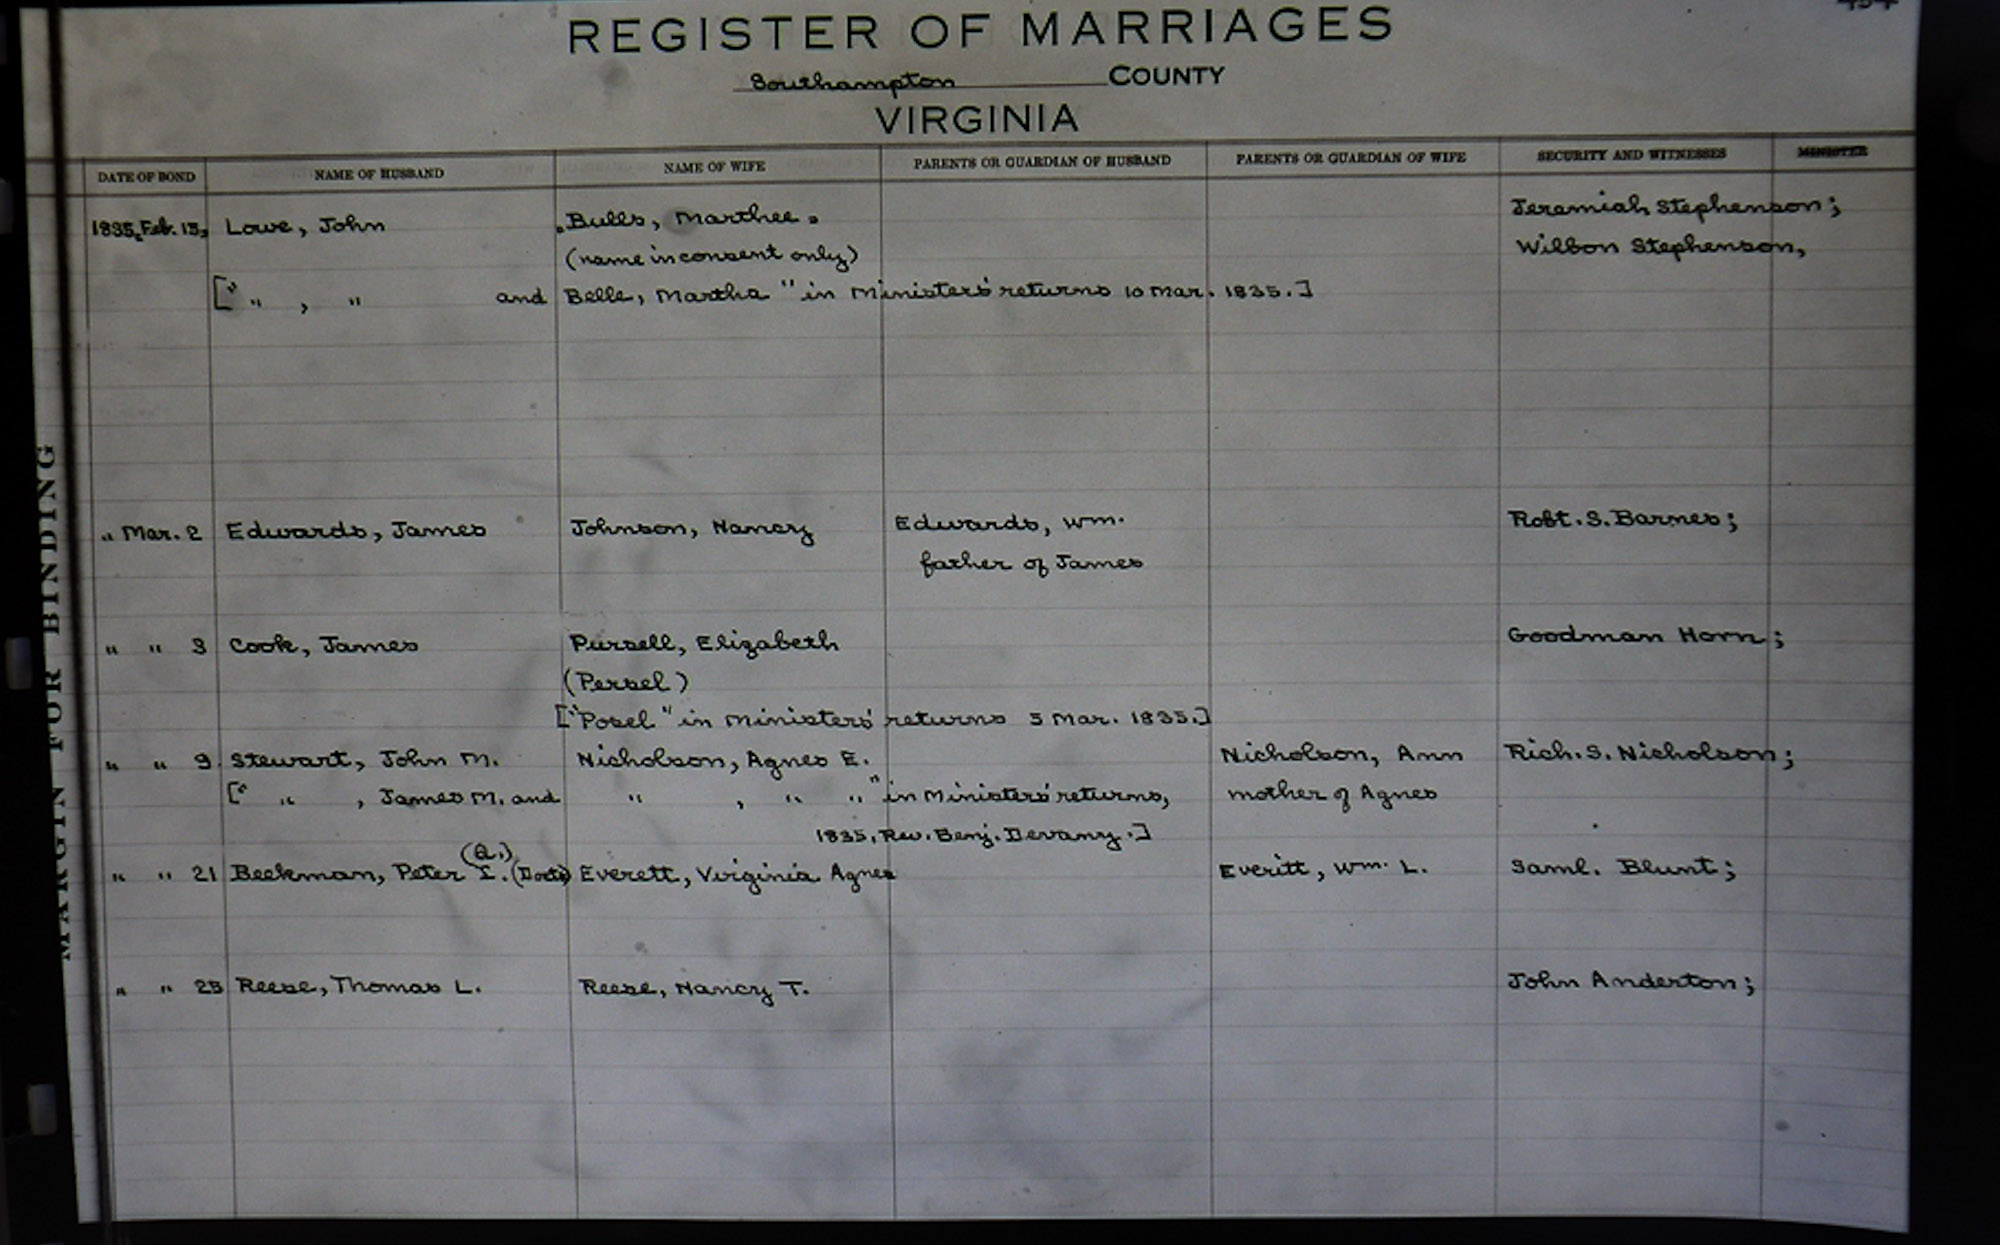 REGISTER OF MARRIAGES
Southampton COUNTY
VIRGINIA
DATE OF BOND NAME OF HUSBAND NAME OF WIFE PARENTS OR GUARDIAN OF HUSBAND PARENTS OR GUARDIAN OF WIFE SECURITY AND WITNESSES MINISTER
1835, Feb. 15, Lowe, John Bulls, Marthee Jeremiah Stephenson;
(name in consent only) Wilbon Stephenson,
[" " , " and Belle, Martha " in Ministers' returns 10 Mar. 1835.]
" Mar. 2 Edwards, James Johnson, Nancy Edwards, Wm. Robt. S. Barnes;
father of James
" " 3 Cook, James Pursell, Elizabeth Goodman Horn;
(Persel)
["Posel" in Ministers' returns 5 Mar. 1835.]
" " 9 Stewart, John M. Nicholson, Agnes E. Nicholson, Ann Rich. S. Nicholson;
[" " , James M. and " , " " " in Ministers' returns, mother of Agnes
1835, Rev. Benj. Devany.]
(Q.)
" " 21 Beekman, Peter I. Everett, Virginia Agnes Everitt, Wm. L. Saml. Blunt;
" " 25 Reese, Thomas L. Reese, Nancy T. John Anderton;
MARGIN FOR BINDING